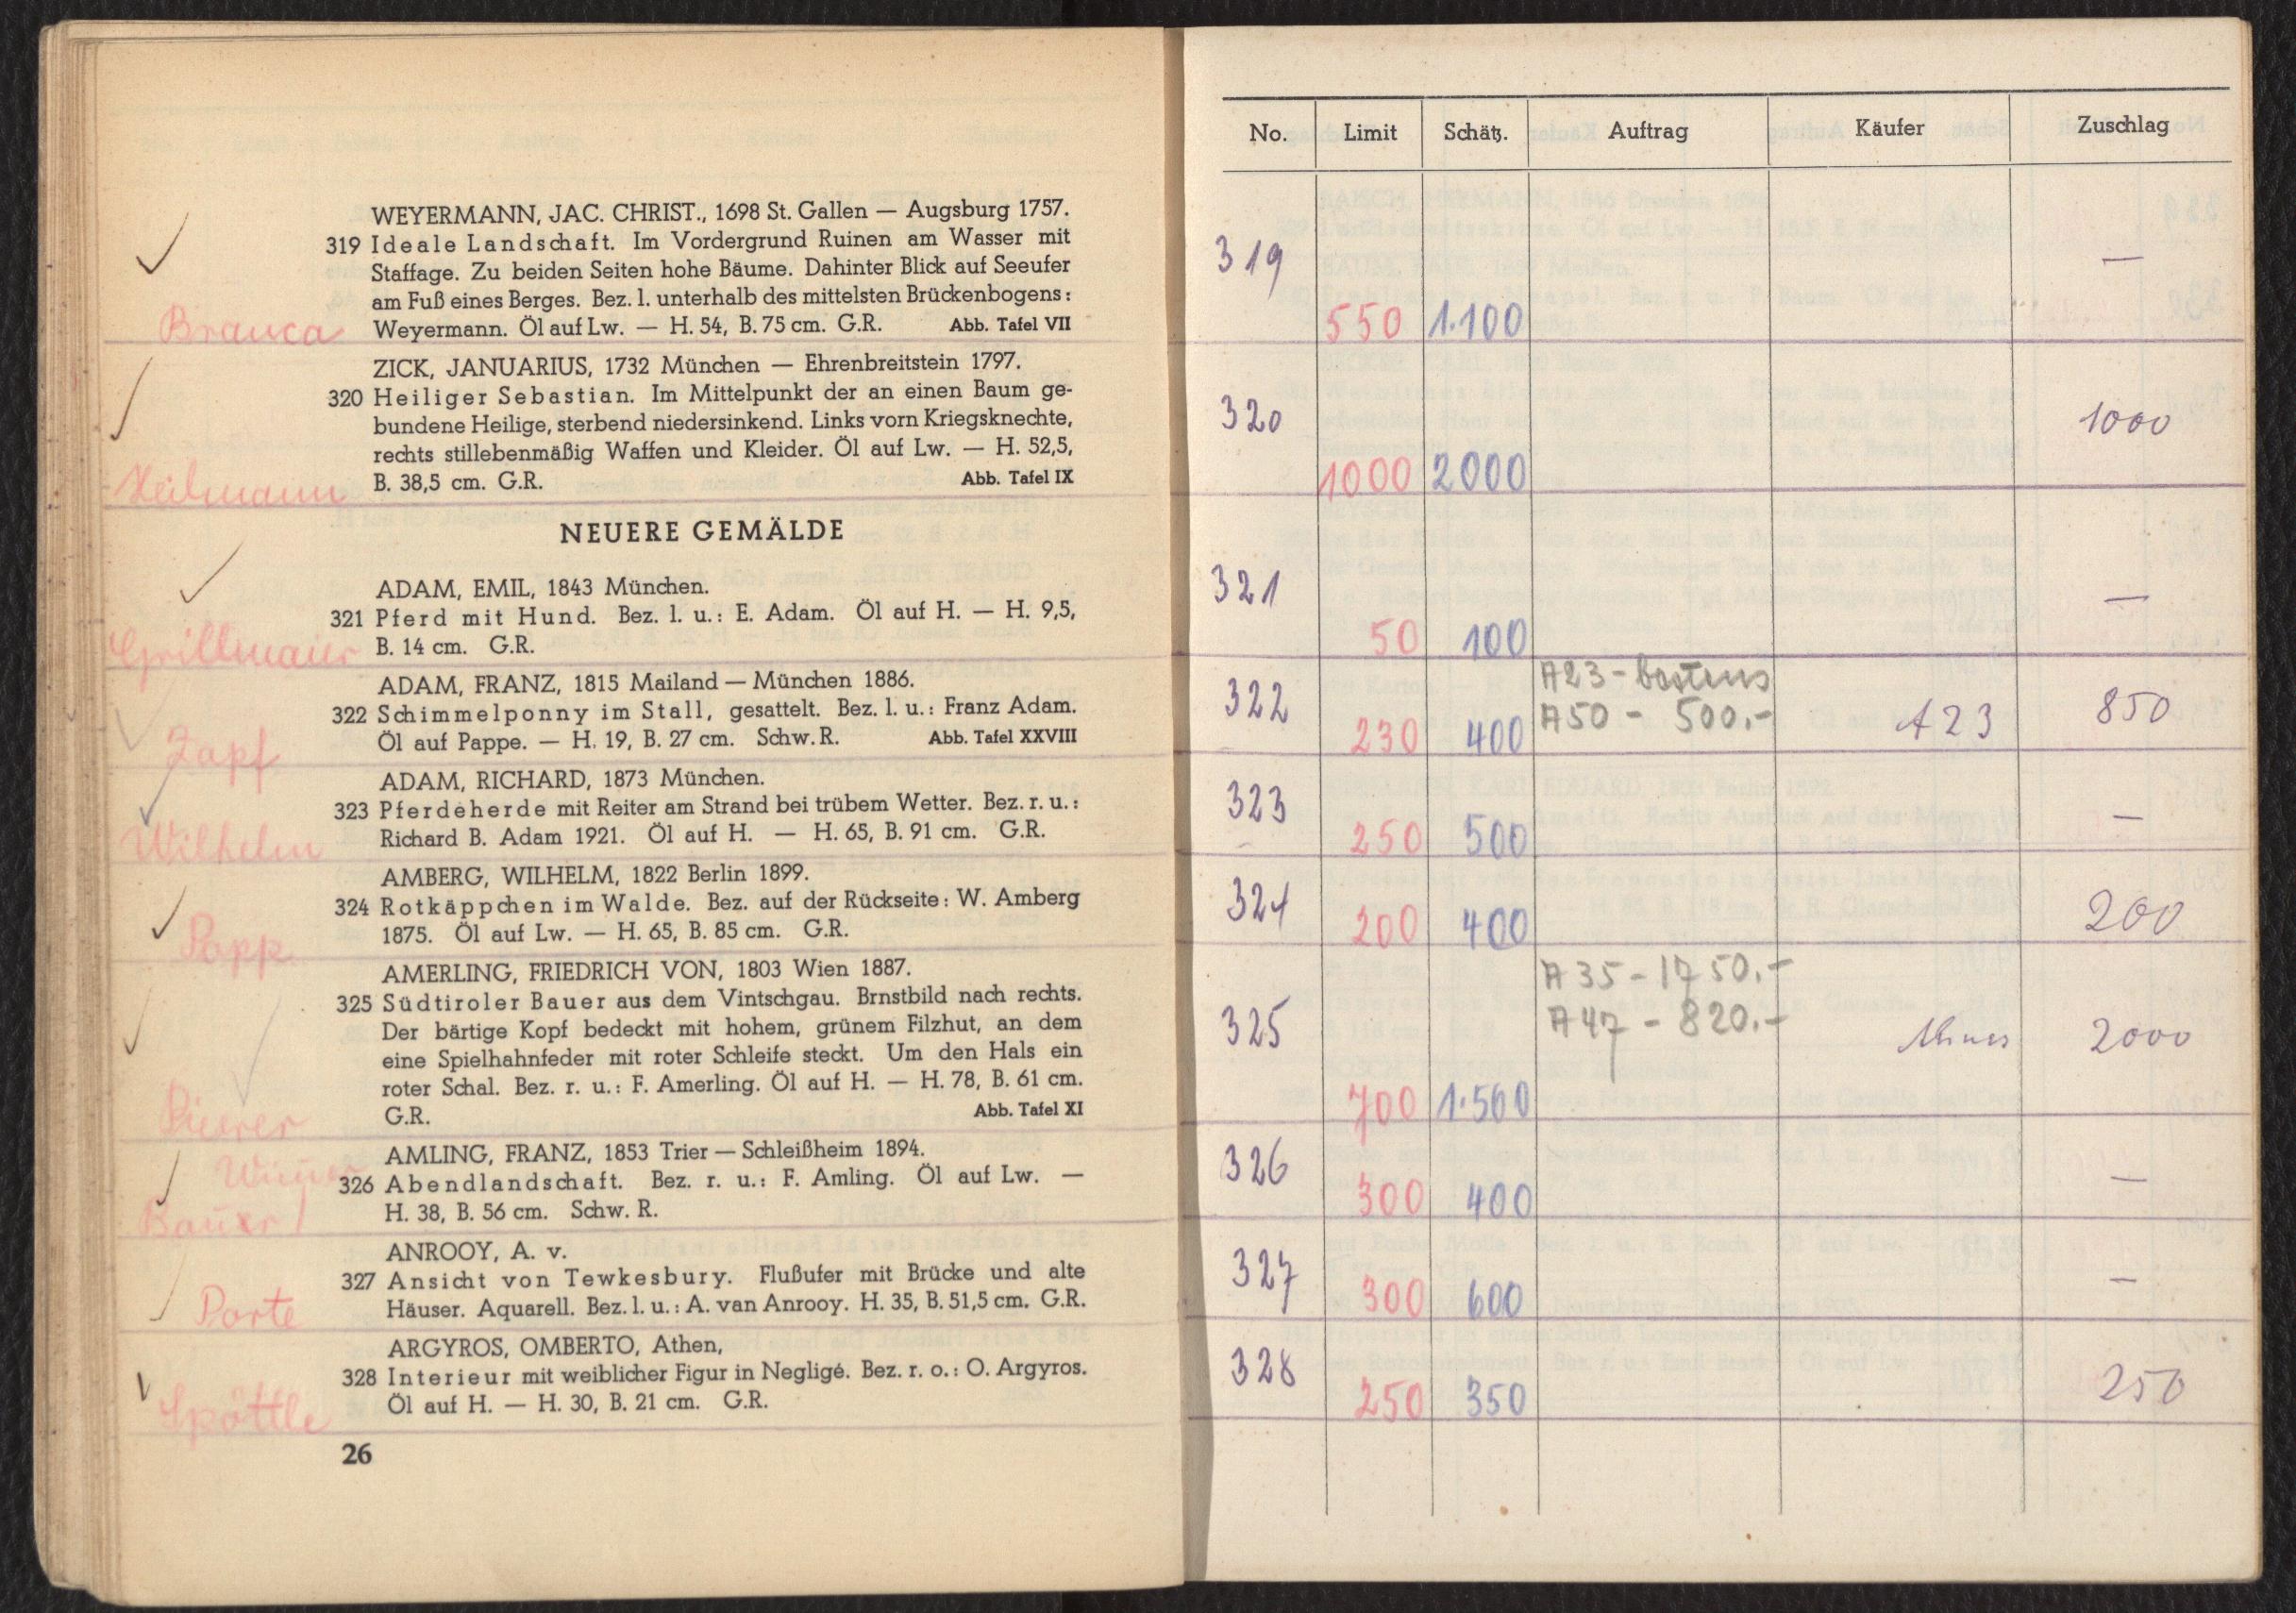 WEYERMANN, JAC. CHRIST., 1698 St. Gallen — Augsburg 1757.
319 Ideale Landschaft. Im Vordergrund Ruinen am Wasser mit
Staffage. Zu beiden Seiten hohe Bäume. Dahinter Blick auf Seeufer
am Fuß eines Berges. Bez. l. unterhalb des mittelsten Brückenbogens:
Branca Weyermann. Öl auf Lw. — H. 54, B. 75 cm. G.R. Abb. Tafel VII
ZICK, JANUARIUS, 1732 München — Ehrenbreitstein 1797.
320 Heiliger Sebastian. Im Mittelpunkt der an einen Baum ge-
bundene Heilige, sterbend niedersinkend. Links vorn Kriegsknechte,
rechts stillebenmäßig Waffen und Kleider. Öl auf Lw. — H. 52,5,
Heilmann B. 38,5 cm. G.R. Abb. Tafel IX
NEUERE GEMÄLDE
ADAM, EMIL, 1843 München.
321 Pferd mit Hund. Bez. l. u.: E. Adam. Öl auf H. — H. 9,5,
Grillmaier B. 14 cm. G.R.
ADAM, FRANZ, 1815 Mailand — München 1886.
322 Schimmelponny im Stall, gesattelt. Bez. l. u.: Franz Adam.
Zapf Öl auf Pappe. — H. 19, B. 27 cm. Schw. R. Abb. Tafel XXVIII
ADAM, RICHARD, 1873 München.
323 Pferdeherde mit Reiter am Strand bei trübem Wetter. Bez. r. u.:
Wilhelm Richard B. Adam 1921. Öl auf H. — H. 65, B. 91 cm. G.R.
AMBERG, WILHELM, 1822 Berlin 1899.
324 Rotkäppchen im Walde. Bez. auf der Rückseite: W. Amberg
Papp 1875. Öl auf Lw. — H. 65, B. 85 cm. G.R.
AMERLING, FRIEDRICH VON, 1803 Wien 1887.
325 Südtiroler Bauer aus dem Vintschgau. Brnstbild nach rechts.
Der bärtige Kopf bedeckt mit hohem, grünem Filzhut, an dem
eine Spielhahnfeder mit roter Schleife steckt. Um den Hals ein
roter Schal. Bez. r. u.: F. Amerling. Öl auf H. — H. 78, B. 61 cm.
G.R. Abb. Tafel XI
AMLING, FRANZ, 1853 Trier — Schleißheim 1894.
326 Abendlandschaft. Bez. r. u.: F. Amling. Öl auf Lw. —
Bauer H. 38, B. 56 cm. Schw. R.
ANROOY, A. v.
327 Ansicht von Tewkesbury. Flußufer mit Brücke und alte
Porte Häuser. Aquarell. Bez. l. u.: A. van Anrooy. H. 35, B. 51,5 cm. G.R.
ARGYROS, OMBERTO, Athen,
328 Interieur mit weiblicher Figur in Negligé. Bez. r. o.: O. Argyros.
Spöttle Öl auf H. — H. 30, B. 21 cm. G.R.
26
No. Limit Schätz. Auftrag Käufer Zuschlag
319 —
550 1.100
320 1000
1000 2000
321 —
50 100
A23 - bestens
322 A50 - 500.- A23 850
230 400
323 —
250 500
324 200
200 400
A35 - 1750.-
325 A47 - 820.- 2000
700 1.500
326 —
300 400
327 —
300 600
328 250
250 350